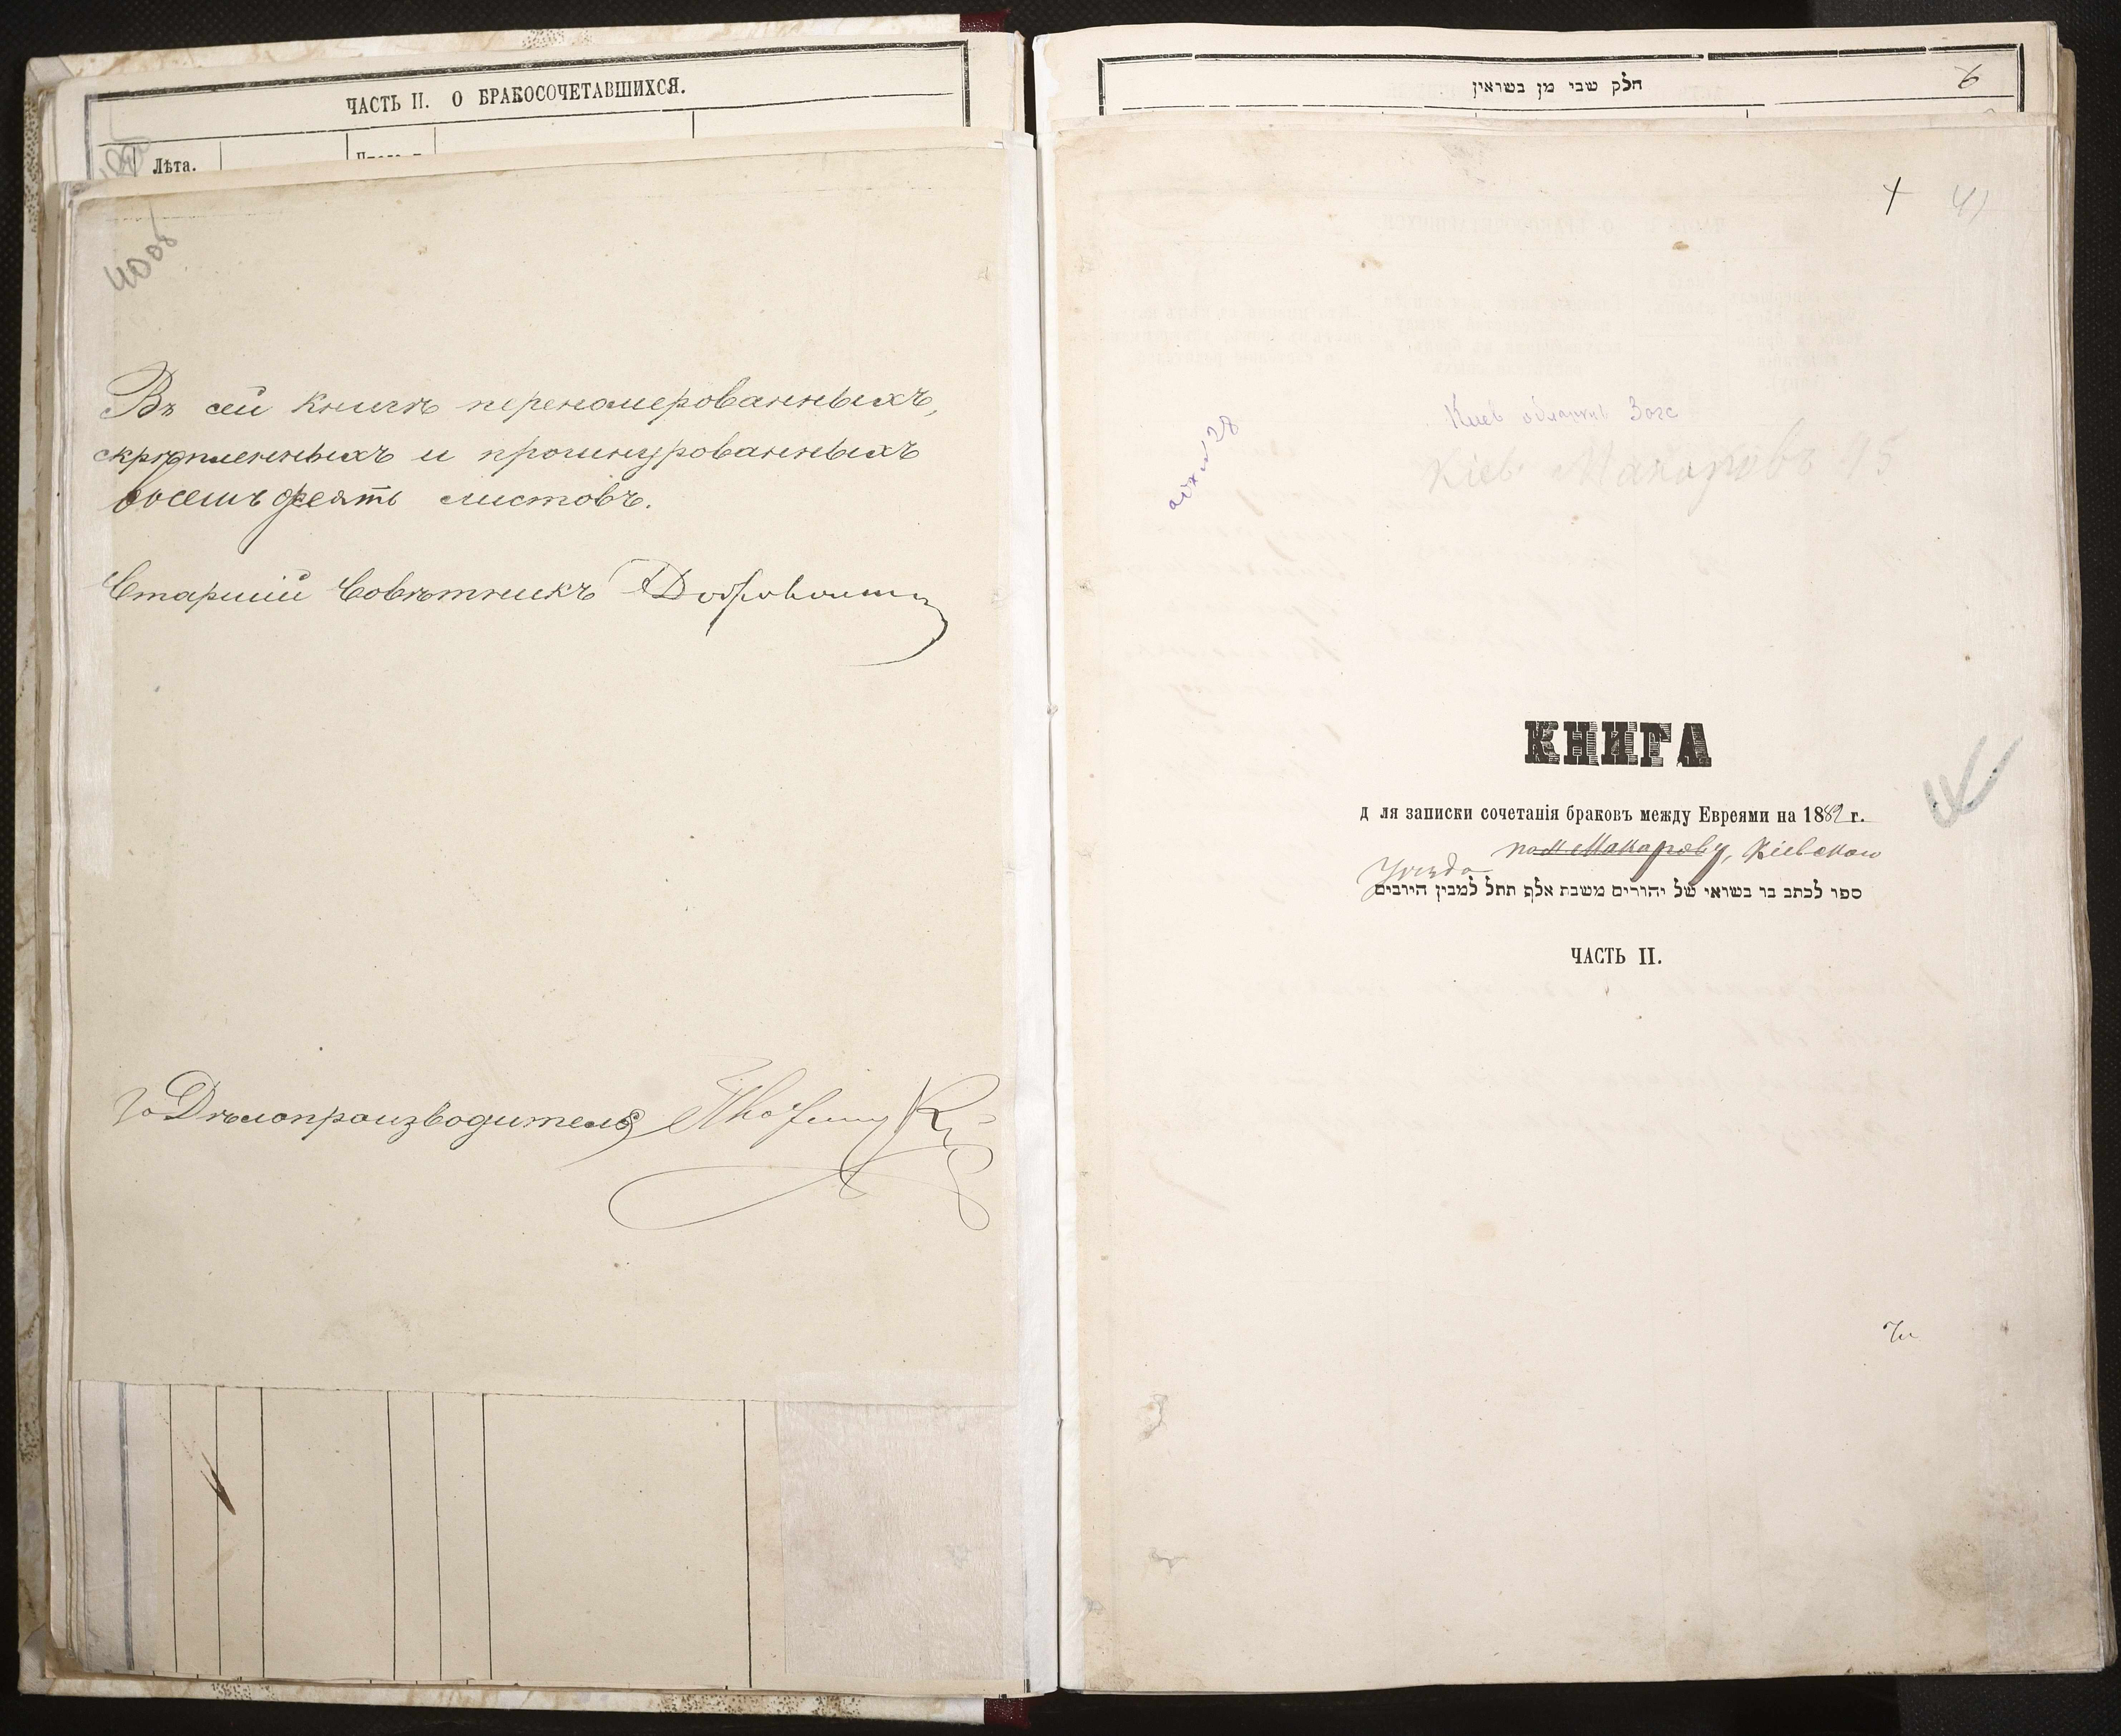 ЧАСТЬ II. О БРАКОСОЧЕТАВШИХСЯ.
Лѣта.
40 об
Въ сей книгѣ перенумерованныхъ,
скрѣпленныхъ и прошнурованныхъ
восемь десять листовъ.
Старшій Совѣтникъ
Дѣлопроизводителя
חלק שבי מן בשואין
6
41
Киев областн Загс
Кіев Макаровъ 95
КНИГА
д ля записки сочетанія браковъ между Евреями на 1882 г.
по м Макарову, Кіевскаго
Уѣзда
ספו לכתב בו בשואי של יהורים משבת אלף תתל למבין היובים
ЧАСТЬ II.